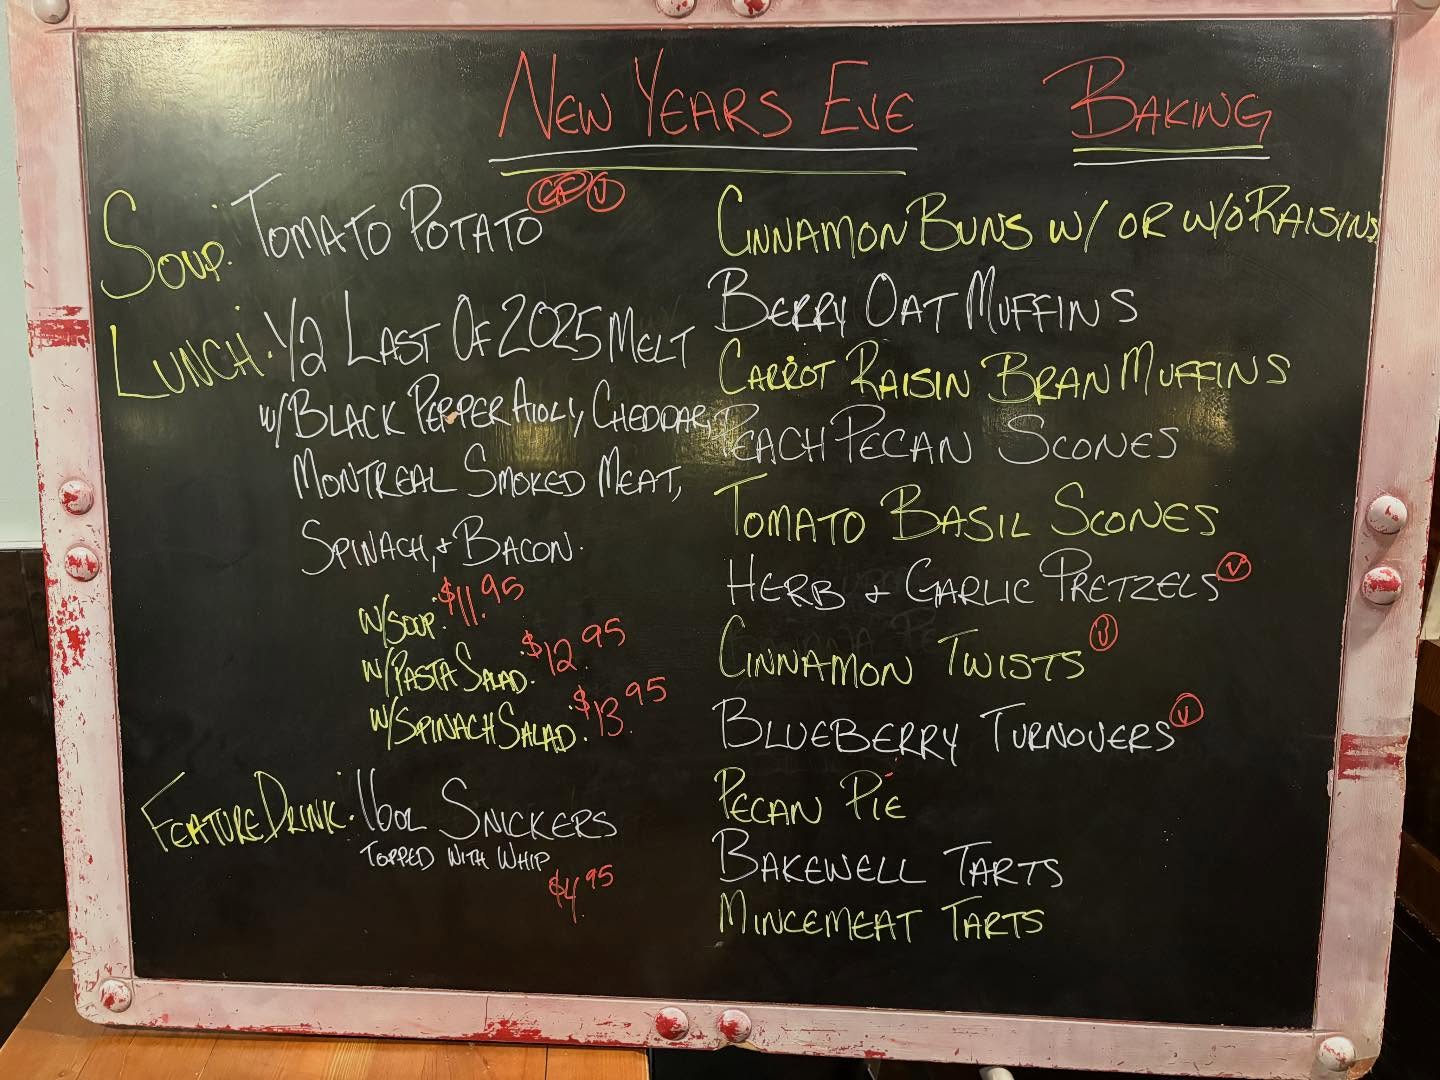 NEW YEARS EVE
SOUP: TOMATO POTATO V
LUNCH: 1/2 LAST OF 2025 MELT
W/BLACK PEPPER AIOLI, CHEDDAR,
MONTREAL SMOKED MEAT,
SPINACH, + BACON.
W/SOUP: $11.95
W/PASTA SALAD: $12.95
W/SPINACH SALAD: $13.95
FEATURE DRINK: 16oz SNICKERS
TOPPED WITH WHIP
$4.95
BAKING
CINNAMON BUNS W/ OR W/O RAISINS
BERRY OAT MUFFINS
CARROT RAISIN BRAN MUFFINS
PEACH PECAN SCONES
TOMATO BASIL SCONES
HERB + GARLIC PRETZELS V
CINNAMON TWISTS V
BLUEBERRY TURNOVERS V
PECAN PIE
BAKEWELL TARTS
MINCEMEAT TARTS